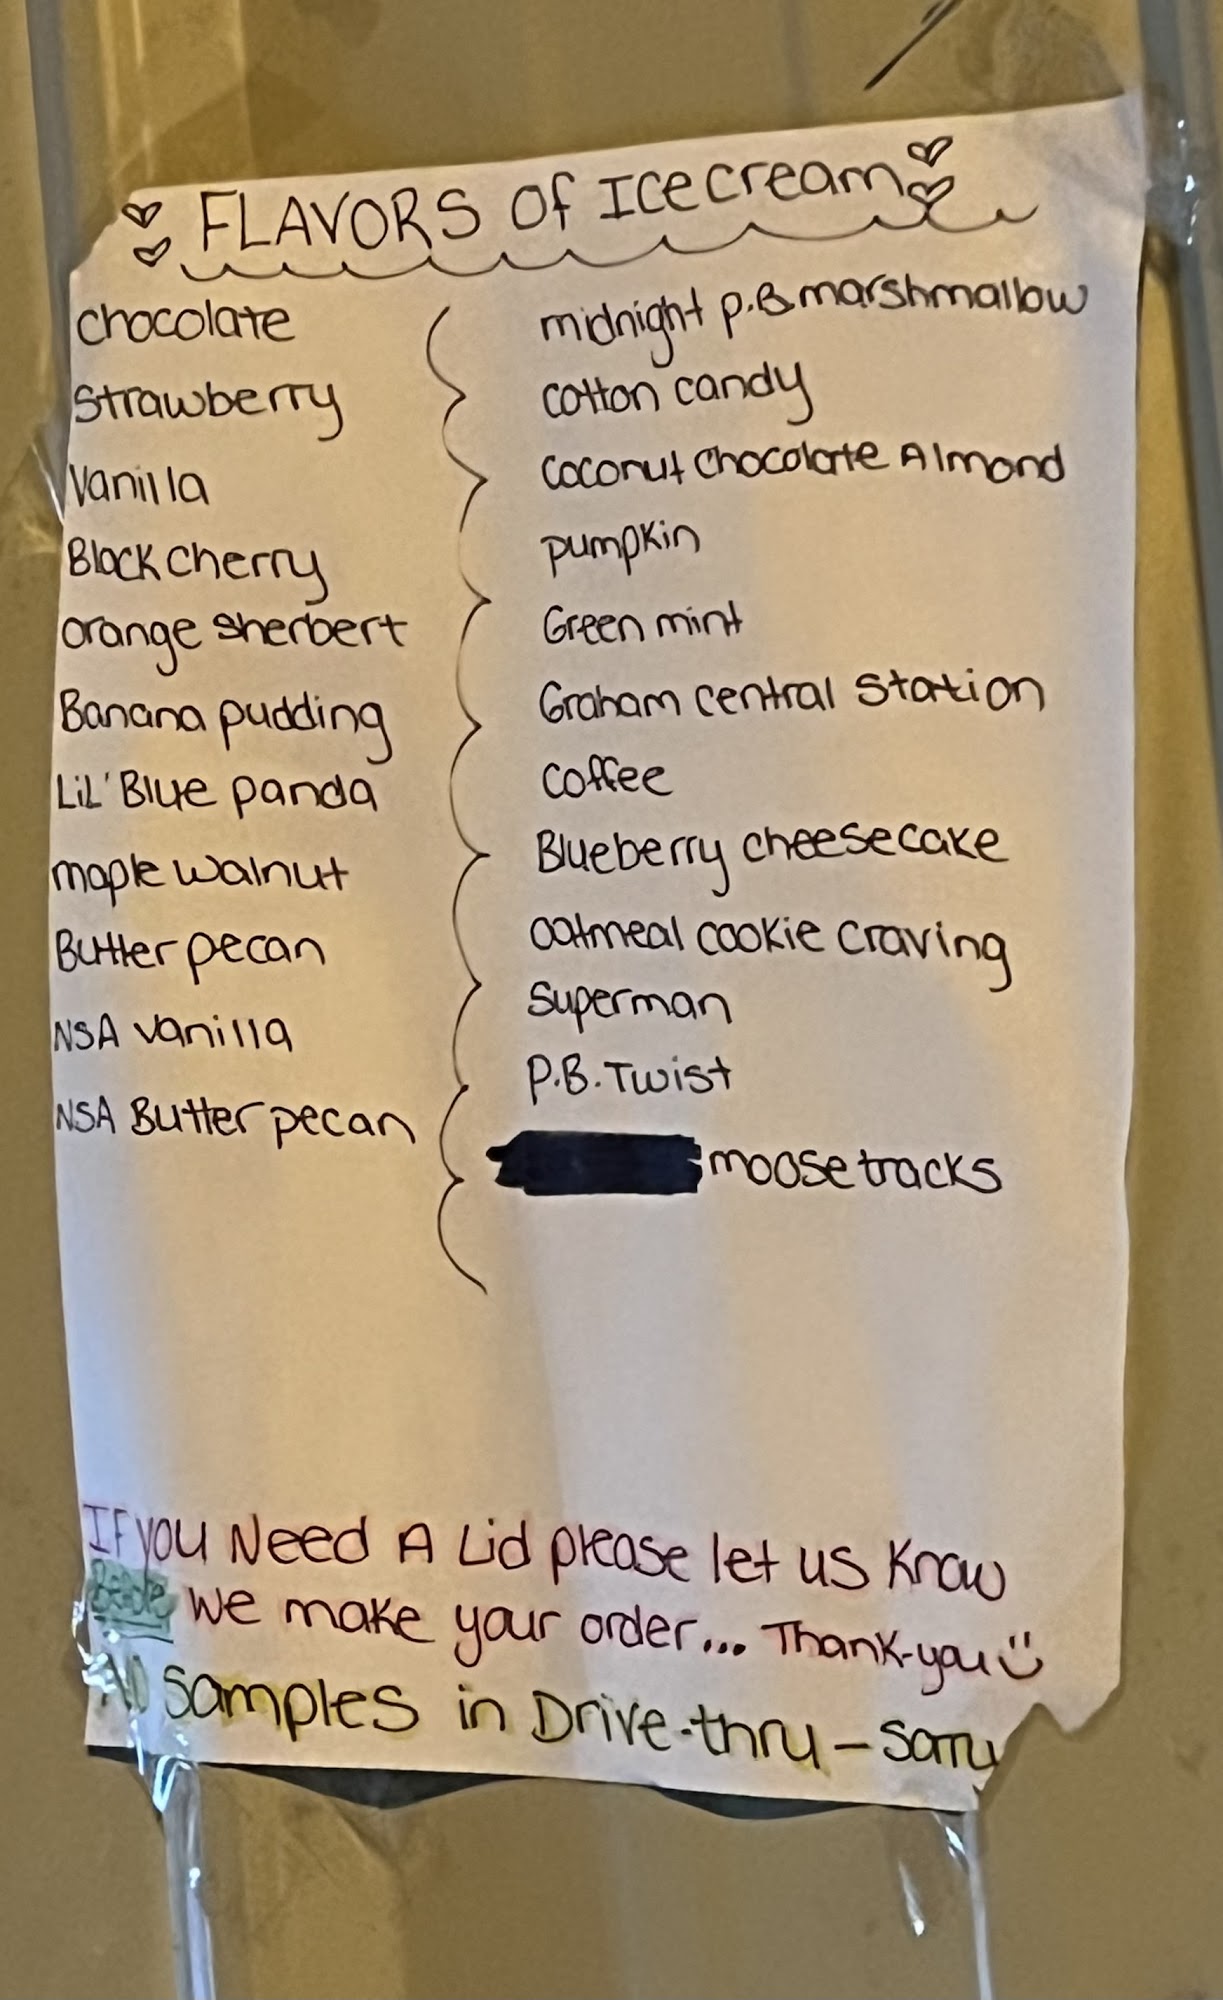 FLAVORS Of Icecream
Chocolate
Strawberry
Vanilla
Black cherry
orange sherbert
Banana pudding
LiL' Blue panda
maple walnut
Butter pecan
NSA vanilla
NSA Butter pecan
midnight p.B. marshmallow
cotton candy
Coconut Chocolate Almond
pumpkin
Green mint
Graham central station
coffee
Blueberry cheesecake
oatmeal cookie craving
Superman
P.B. Twist
moosetracks
If you Need A Lid please let us Know
We make your order... Thank-you
NO Samples in Drive-thru - Sorry